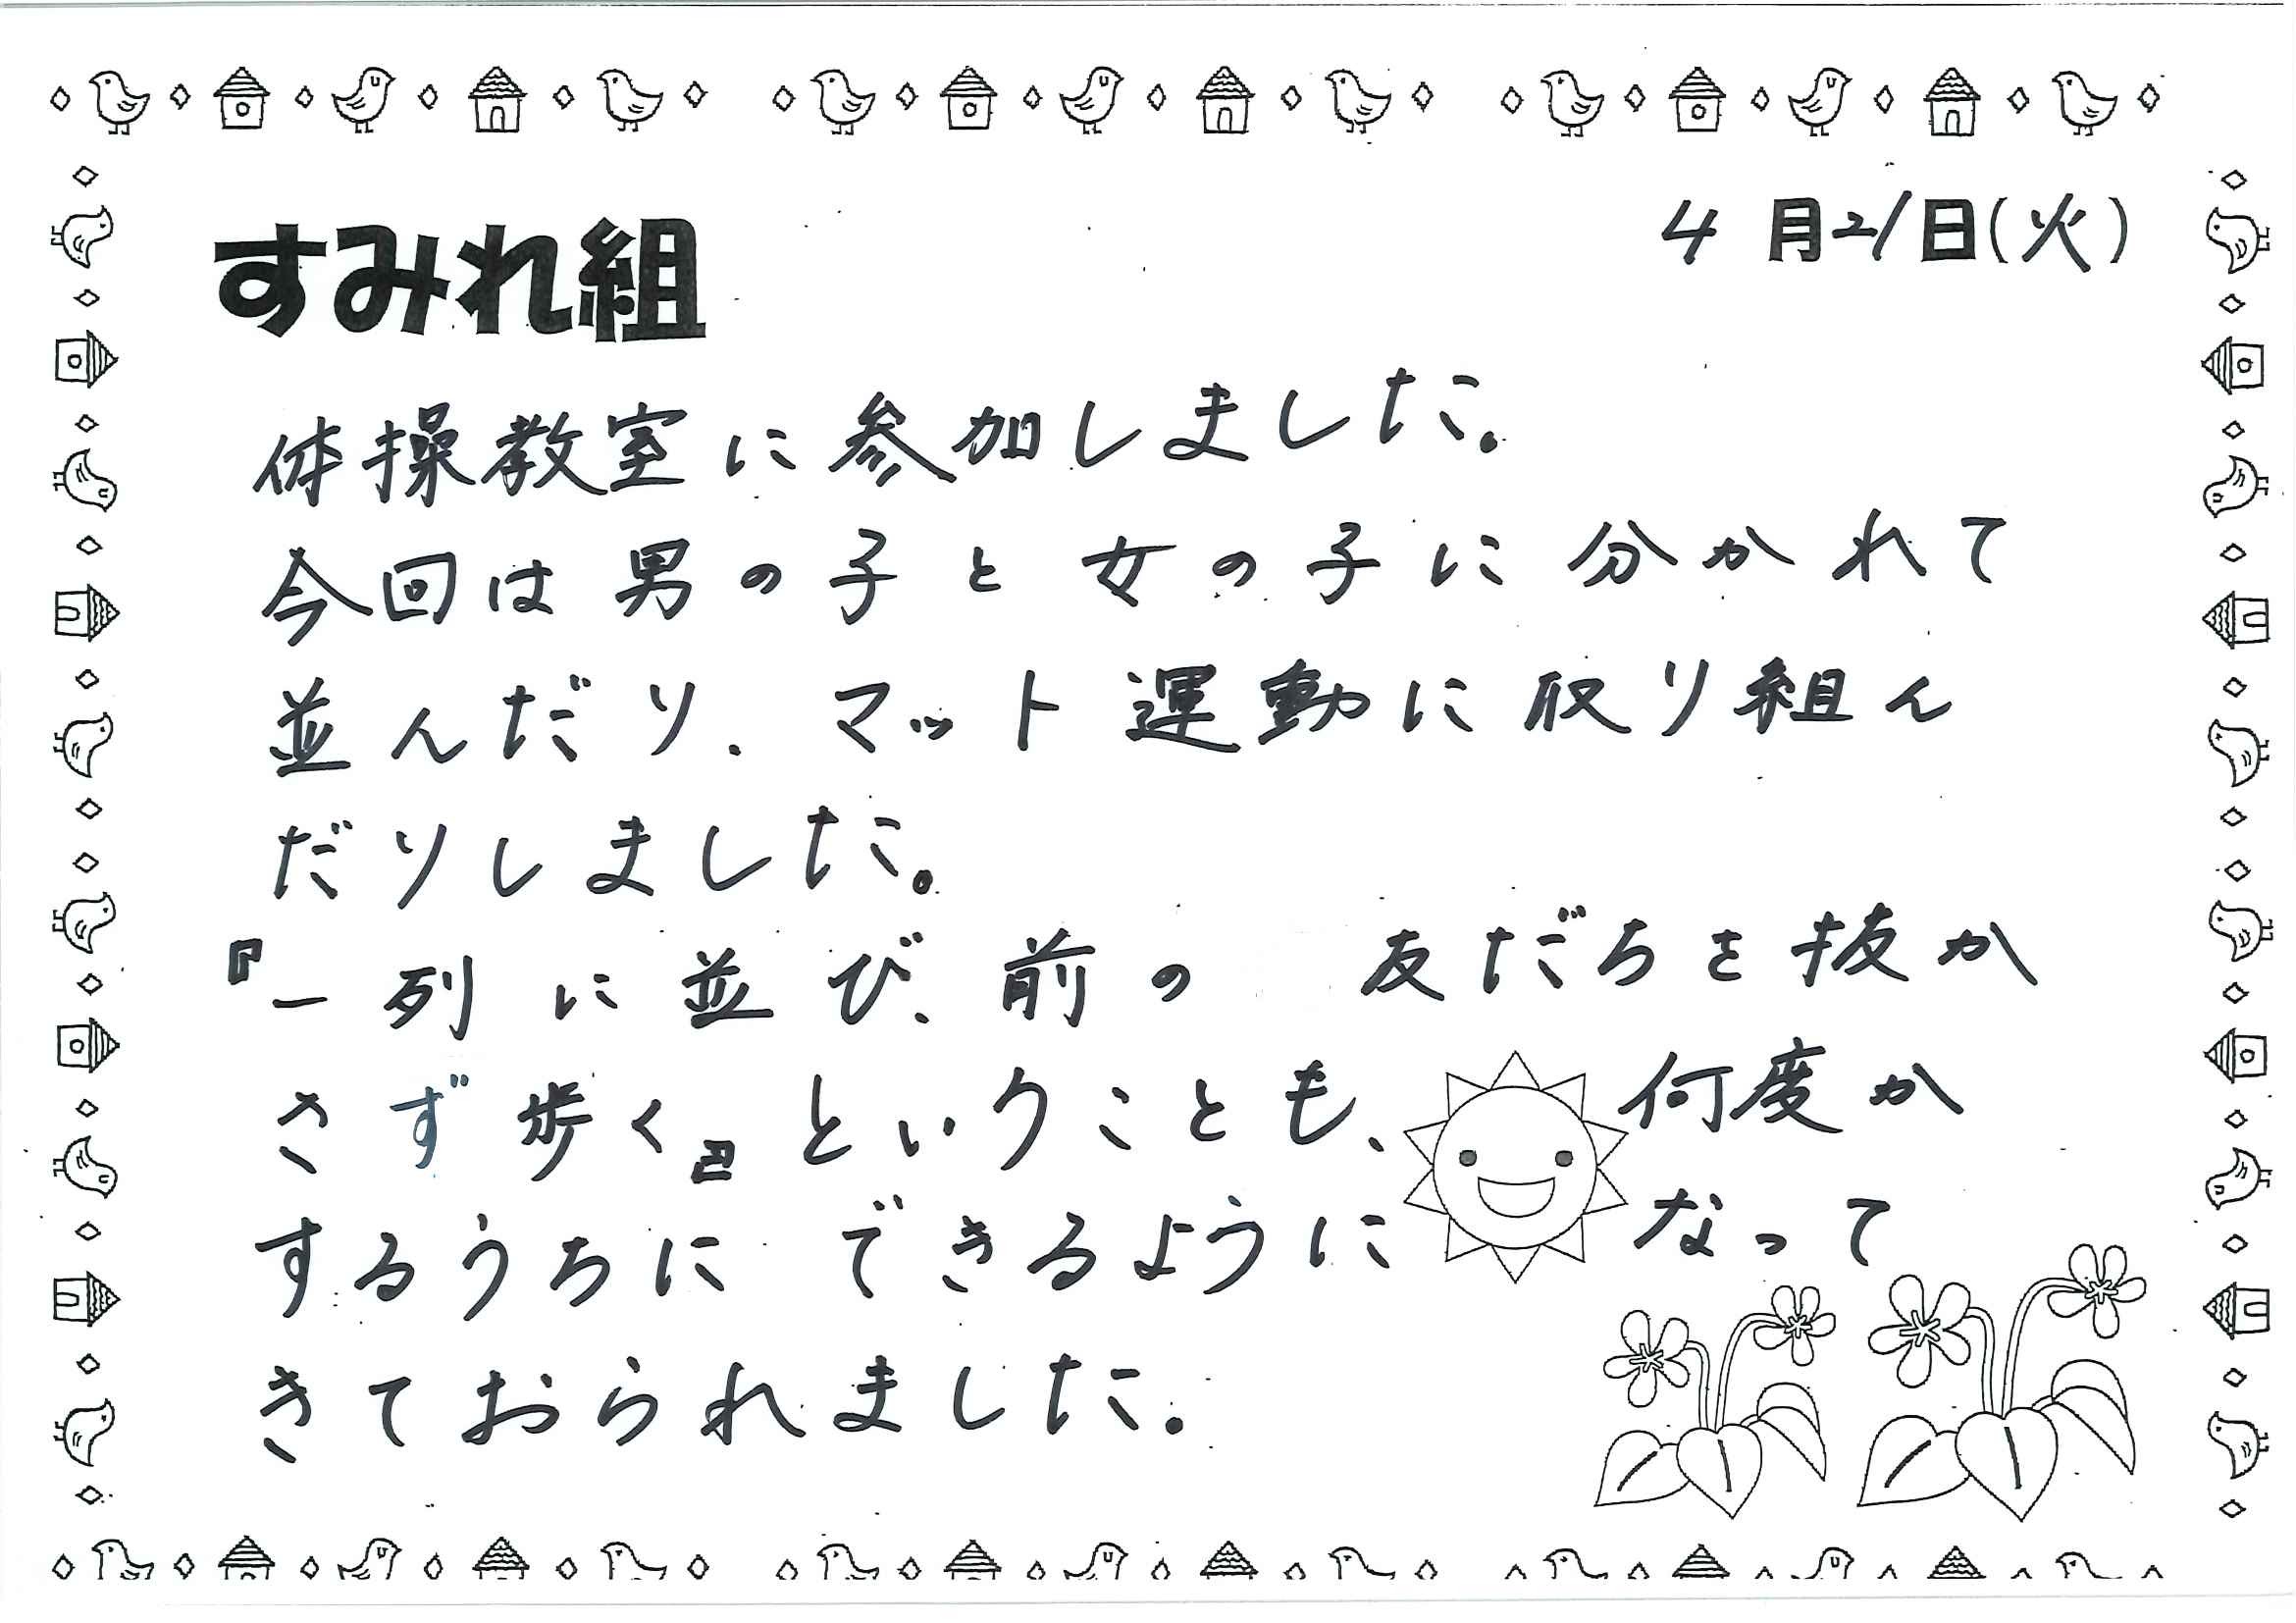 すみれ組
4月21日(火)
体操教室に参加しました。
今回は男の子と女の子に分かれて
並んだり、マット運動に取り組ん
だりしました。
『一列に並び、前の友だちを抜か
さず歩く』ということも、何度か
するうちにできるようになって
きておられました。